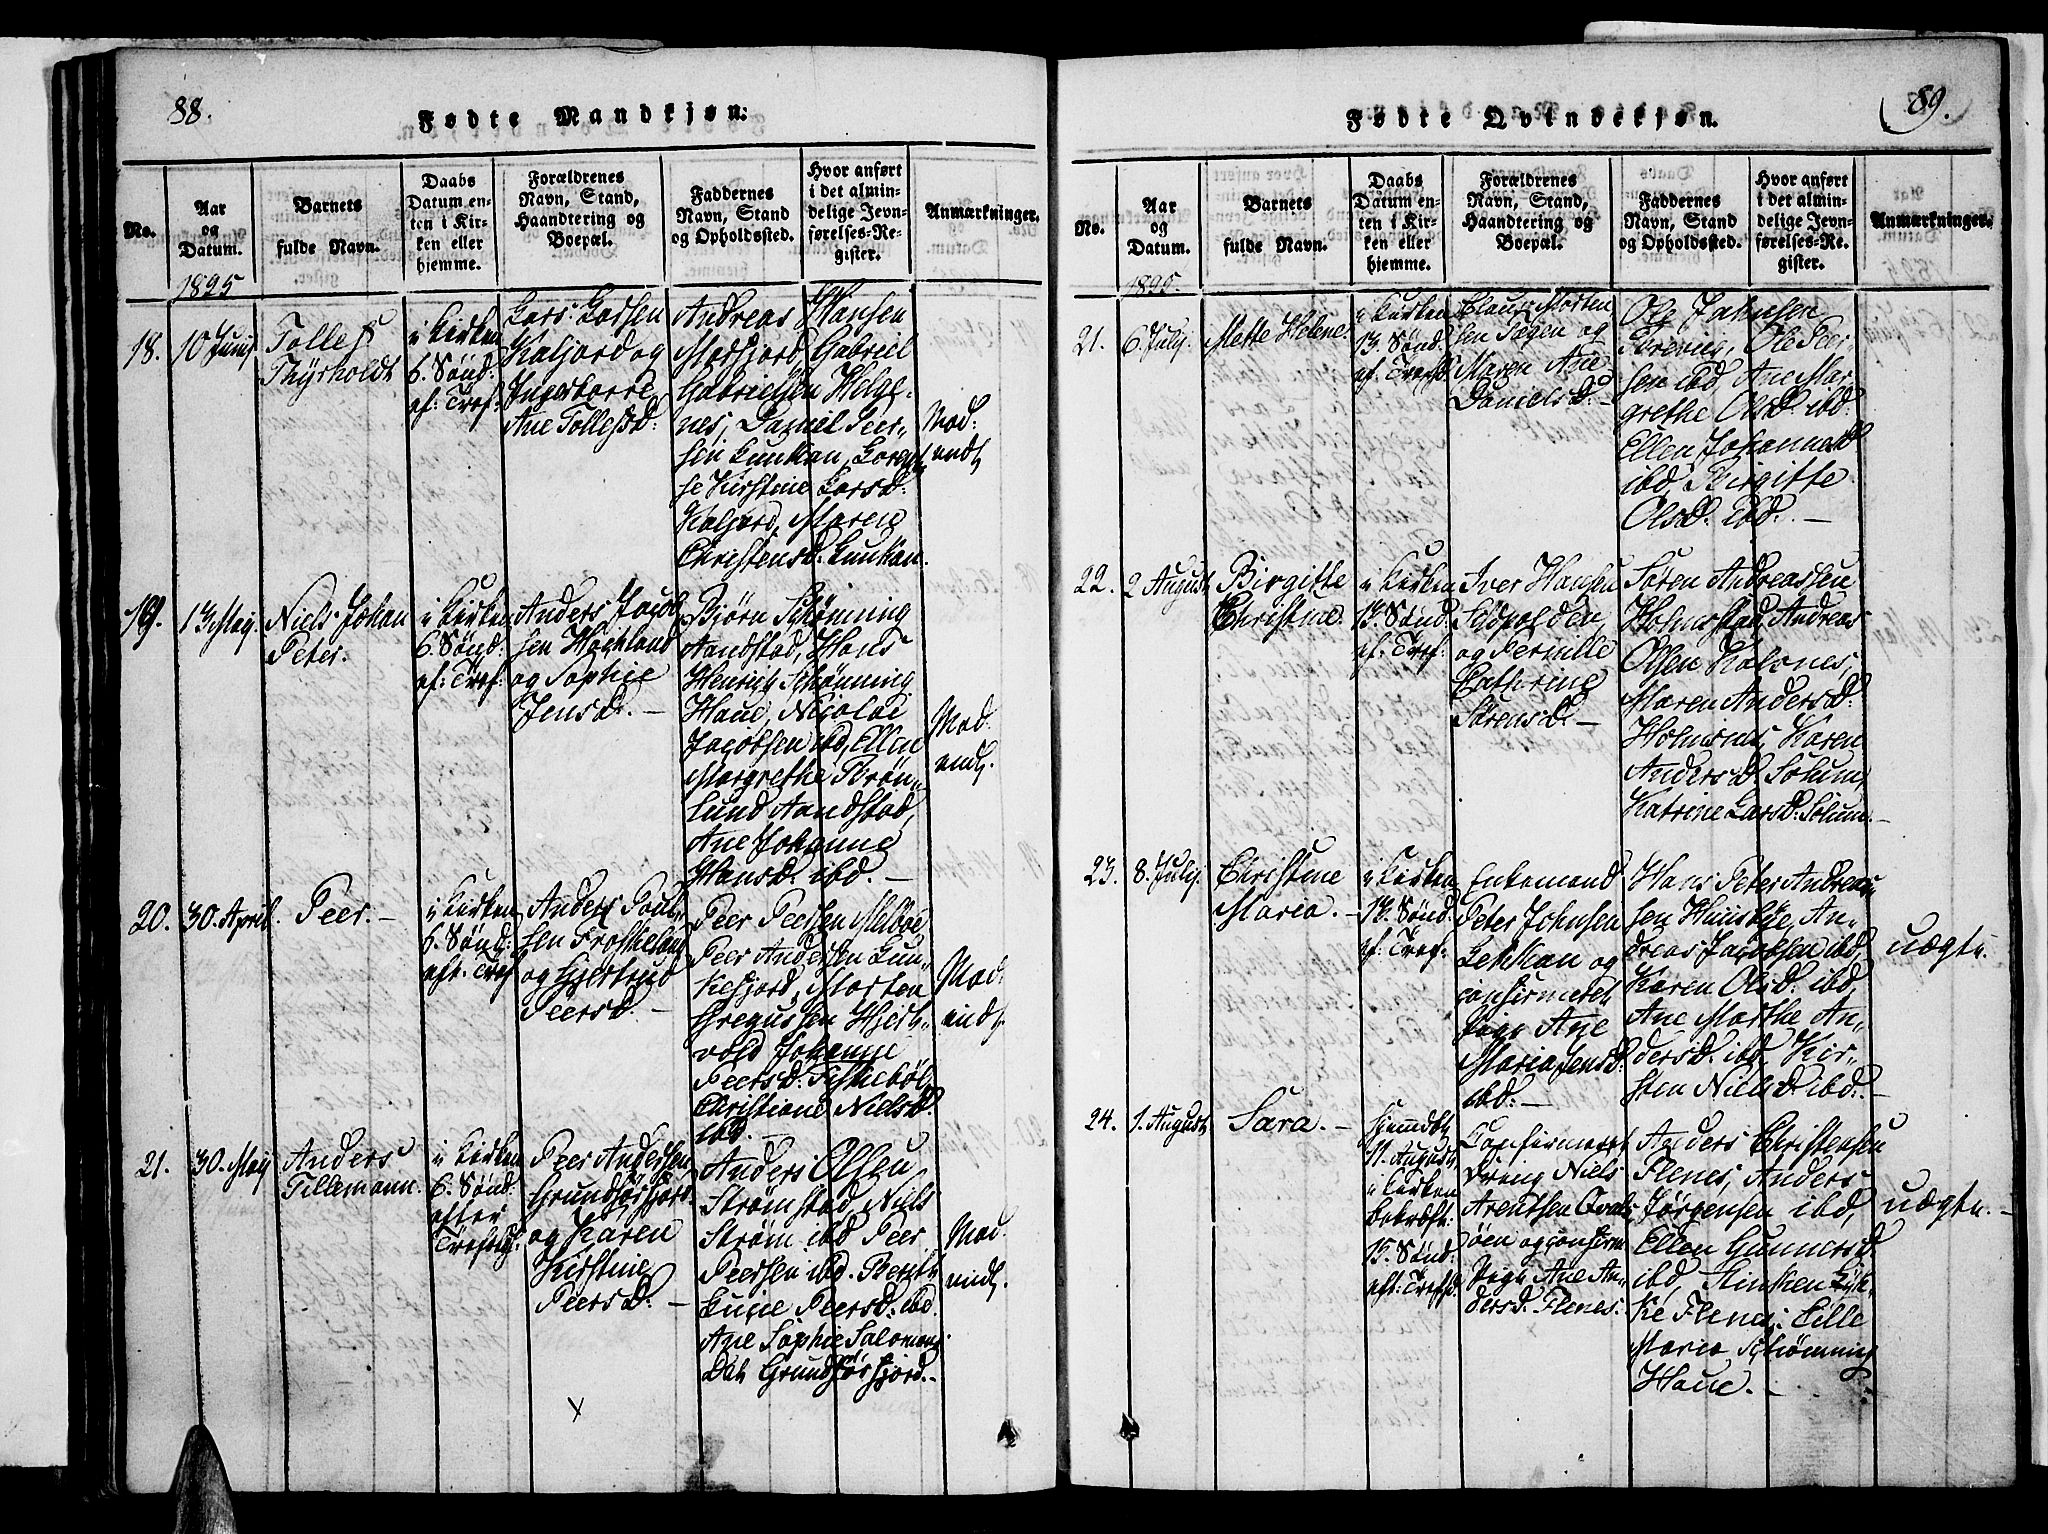 88.
Fødte Mandkjøn.
No.
Aar
og
Datum.
Barnets
fulde Navn.
Daabs
Datum en-
ten i Kir-
ken eller
hjemme.
Forældrenes
Navn, Stand,
Haandtering og
Boepæl.
Faddernes
Navn, Stand
og Opholdssted.
Hvor anført
i det almin-
delige Jevn-
førelses-Re-
gister.
Anmærkninger.
1825
18.
10 Junij
Tolless
Thyrholdt
i Kirken
6. Sønd:
ef: Tref:
Lars Larsen
Kaljord og
Ingerborre
Ane Tollesd:
Andreas Hansen
Morfjord, Gabriel
Gabrielsen Helge-
nes, Daniel Peer-
sen Lunkan, Lorent-
se Kirstine Larsd:
Kaljord, Maren
Christensd. Lunkan.
19.
13 Maj.
Niels Johan
Peter.
i Kirken
6. Sønd:
ef: Tref:
Anders Jacob-
sen
og Sophie
Jensd. —
Bjørn Schønning
Aandstad, Hans
Henrich Schønning
Haue, Nicolai
Jacobsen ibd, Ellen
Margrethe Brøn-
lund Aandstad,
Ane Johanne
Hansd. ibd. —
20.
30. April.
Peer. —
i Kirken
6. Sønd:
eft. Tref:
Anders Poul-
sen Froskeland
og Gjertrud
Peersd. —
Peer Peersen Melboe
Peer Andersen Lun-
kefjord, Morten
Gregussen Hjert-
vold, Johanne
Peersd. Fiskebøl,
Christiane Nielsd.
ibd. —
21.
30. Maij
Anders
Tillemann.
i Kirken
6. Sønd:
efter
Peer Andersen
Grundførfjord
og Karen
Kirstine
Peersd: —
Anders Olsen
Strømstad, Niels
Strøm ibd Peer
Peersen ibd. Berit
Lucie Peersd. ibd.
Ane Sophie Salomons-
Dat Grundførfjord. —
89.
Fødte Qvindekjøn.
No.
Aar
og
Datum.
Barnets
fulde Navn.
Daabs
Datum en-
ten i Kir-
ken eller
hjemme.
Forældrenes
Navn, Stand,
Haandtering og
Boepæl.
Faddernes
Navn, Stand
og Opholdssted.
Hvor anført
i det almin-
delige Jevn-
førelses-Re-
gister.
Anmærkninger.
1825.
21.
6. Julij
Mette Helene.
i Kirken
13. Sønd.
ef: Trefd.
Claus Morten-
sen og
Maren Ane
Danielsd. —
Ole Johnsen
Ole Peer-
sen ibd, Ane Mar-
grethe Olsd. ibd.
Ellen Johannesd
ibd, Birgitte
Olsd. ibd. —
22.
2 August
Birgitte
Christine.
i Kirken
13. Sønd.
ef. Tref:
Iver Hansen
og Pernille
Cathrine
Sørensd. —
Søren Andreassen
Holmstad, Andreas
Olsen Kalsnes,
Maren Andersd.
Holmsnes, Karen
Andersd. Solum,
Katrine Larsd: Solum. —
23.
8. Julij.
Christine
Maria. —
i Kirken
13. Sønd.
ef. Tref:
Enkemand
Peter Johnsen
og
confirmeret
Pige Ane
Maria Jensd:
ibd: —
Hans Peter Andrea-
sen An-
dreas Jacobsen ibd,
Karen Olsd. ibd,
Ane Marthe An-
dersd. ibd, Kir-
sten Nielsd. ibd. —
uægte.
24.
1. August
Sara. —
hjemdbt
11. August
i Kirken
bekræft:
15. Sønd:
eft: Trefd.
Confirmeret
Dreng Niels
Arentsen Qval-
øen og confirm
Pige Ane An-
dersd. Flenes.
Anders Christensen
Flenes, Anders
Jørgensen ibd,
Ellen Gunnersd.
ibd,
Flenes, Cille
Maria Schønning
Haue. —
uægte. —